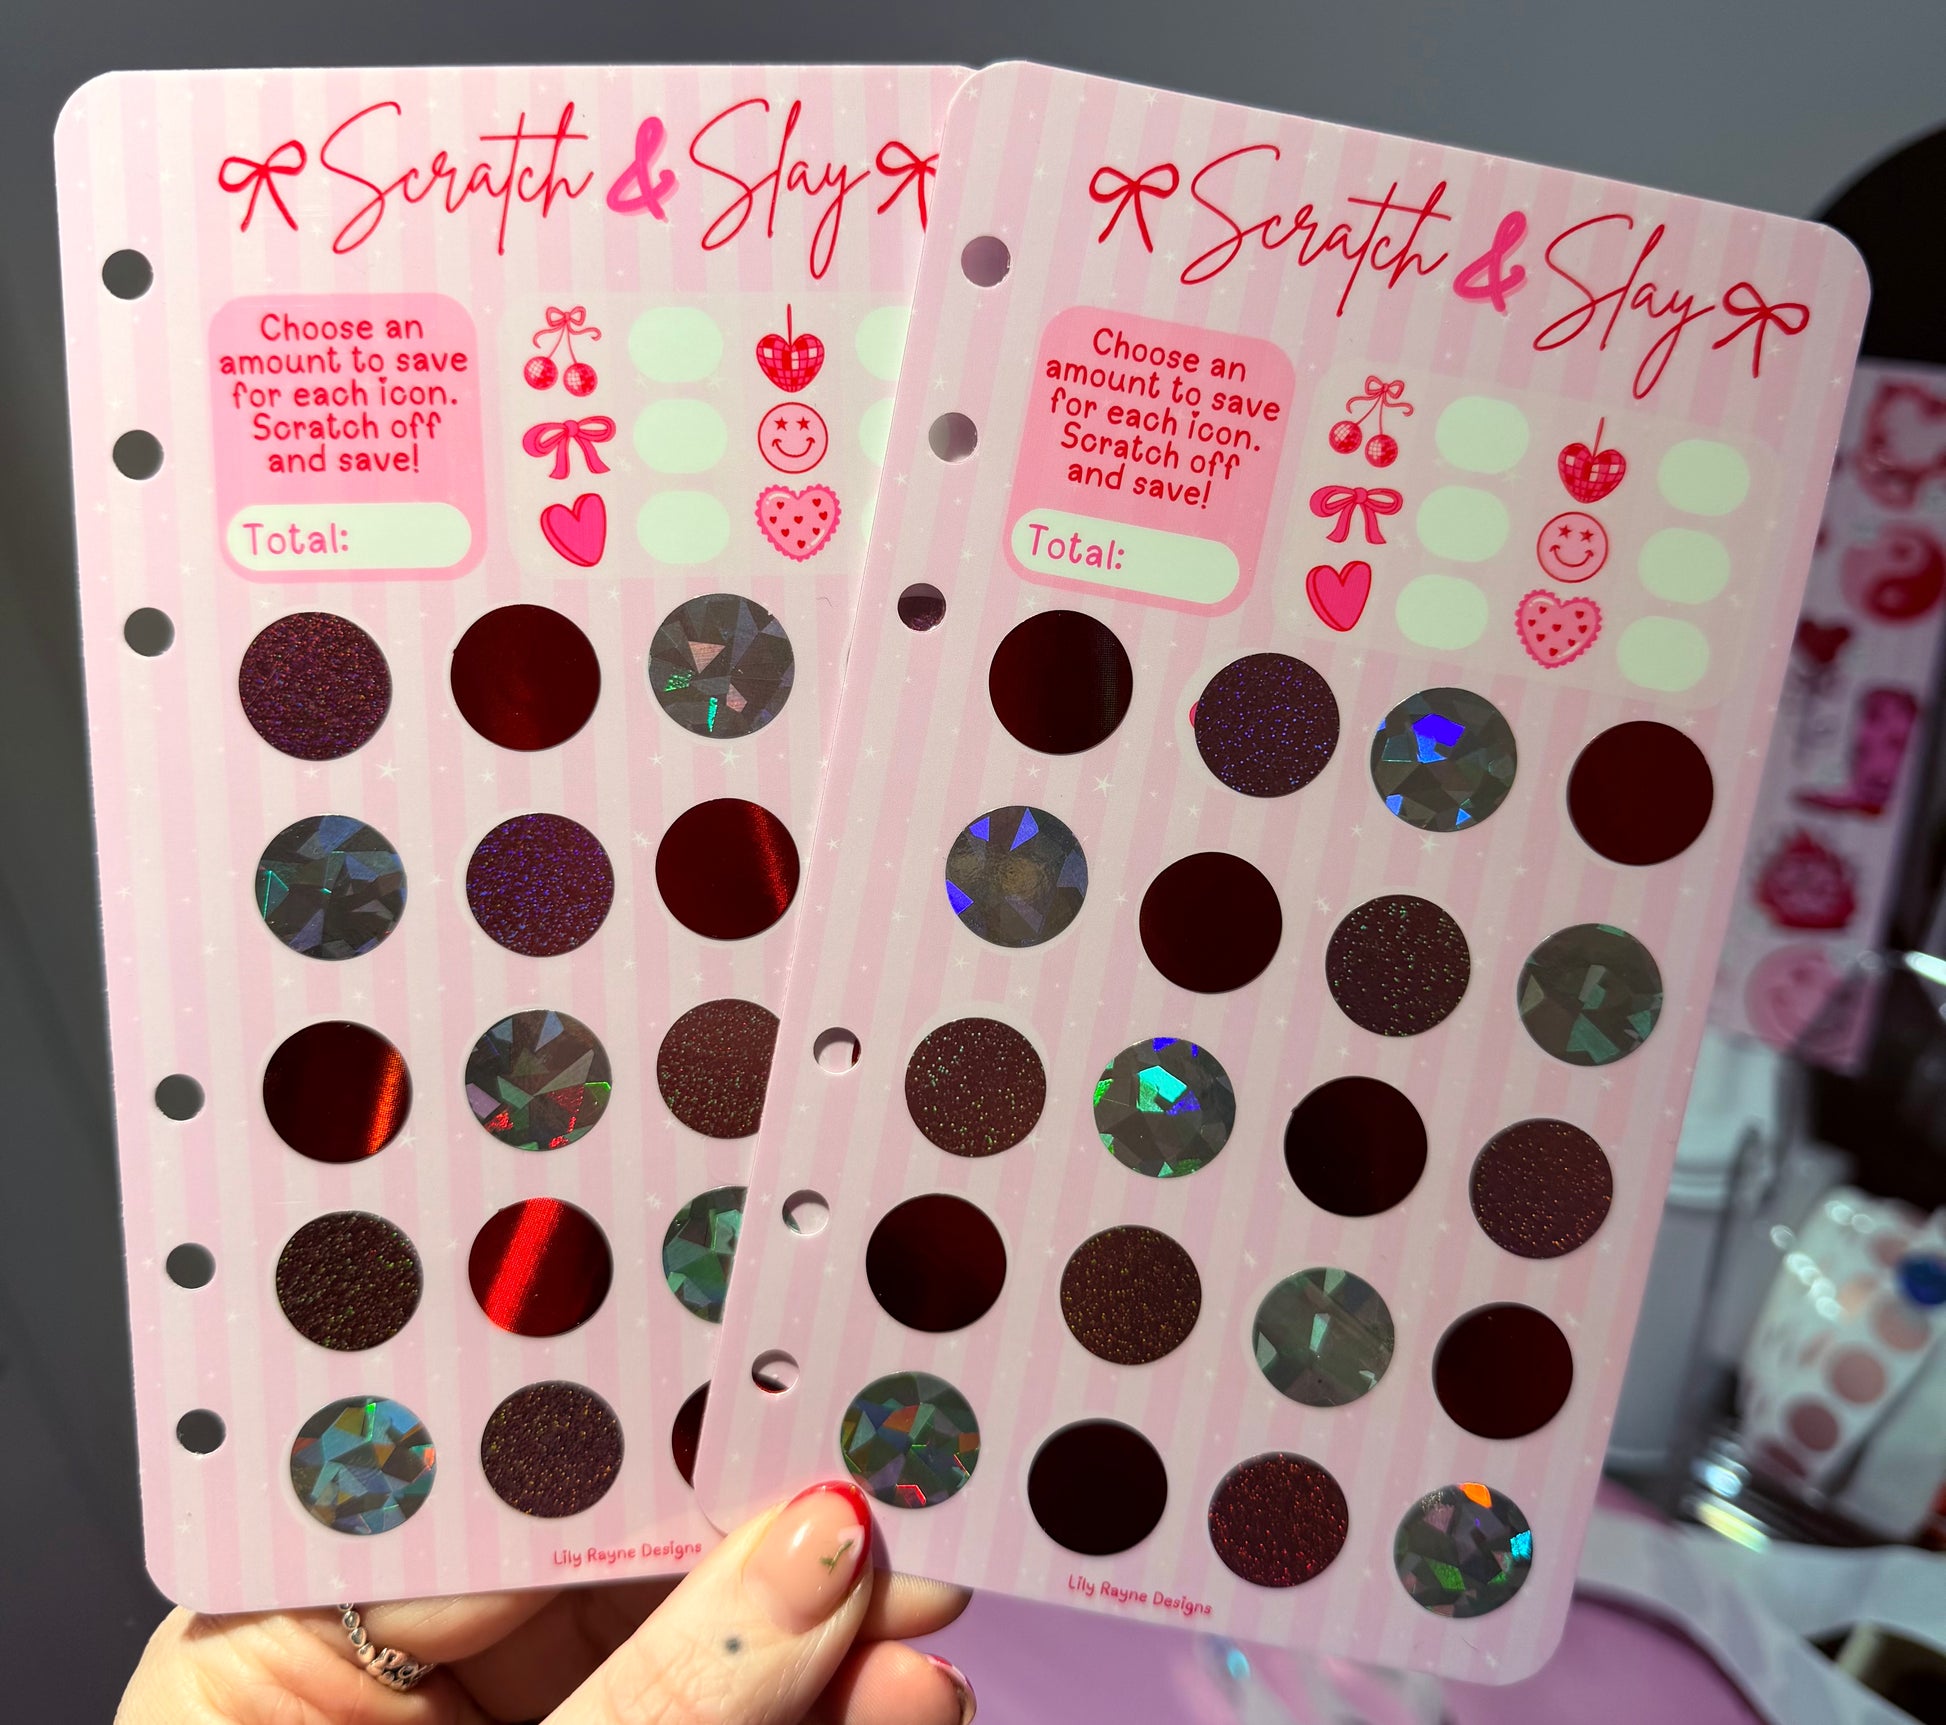 Scratch & Slay
Choose an
amount to save
for each icon.
Scratch off
and save!
Total:
Lily Rayne Designs
Scratch & Slay
Choose an
amount to save
for each icon.
Scratch off
and save!
Total:
Lily Rayne Designs